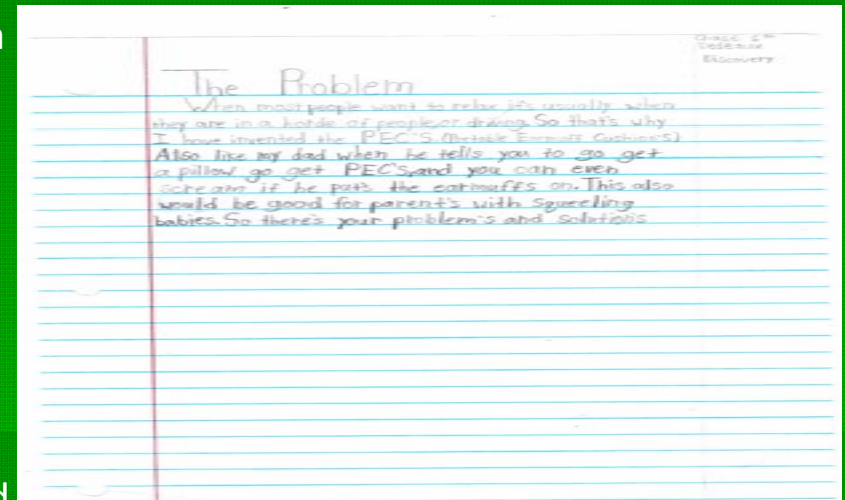 The Problem
When most people want to relax it's usually when
they are in a horde of people or driving. So that's why
I have invented the PEC'S (Portable Earmuff Cushion's)
Also like my dad when he tells you to go get
a pillow go get PEC'S, and you can even
scream if he puts the earmuffs on. This also
would be good for parent's with squeeling
babies. So there's your problem's and solution's
Discovery